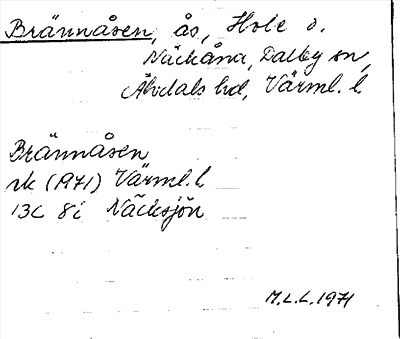 Brännåsen, ås, Hole o.
Näckåna, Dalby sn,
Älvdals hd, Värml. l.
Brännåsen
rk (1971) Värml. l.
13C 8i Näcksjön
M.L.L. 1971